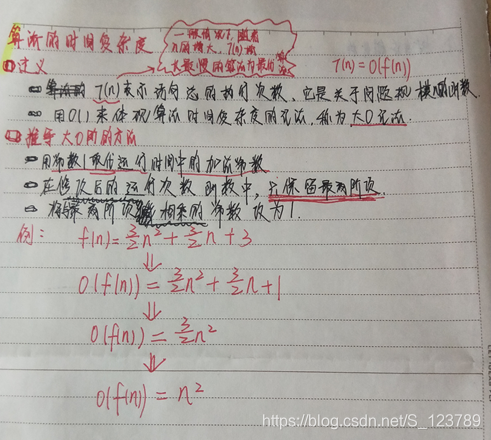 算法的时间复杂度
一般情况下，随着
n的增大，T(n)增
长最慢的算法为最优算法
①定义
T(n)=O(f(n))
T(n)表示语句运行的执行次数，它是关于问题规模n的函数
用O()来体现算法时间复杂度的记法，称为大O记法。
②推导大O阶的方法
用常数1取代运行时间中的加法常数
在修改后的运行次数函数中，只保留最高阶项
将最高阶项相乘的常数改为1.
例：
f(n)=3/2n²+3/2n+3
⇓
O(f(n))=3/2n²+3/2n+1
⇓
O(f(n))=3/2n²
⇓
O(f(n))=n²
https://blog.csdn.net/S_123789